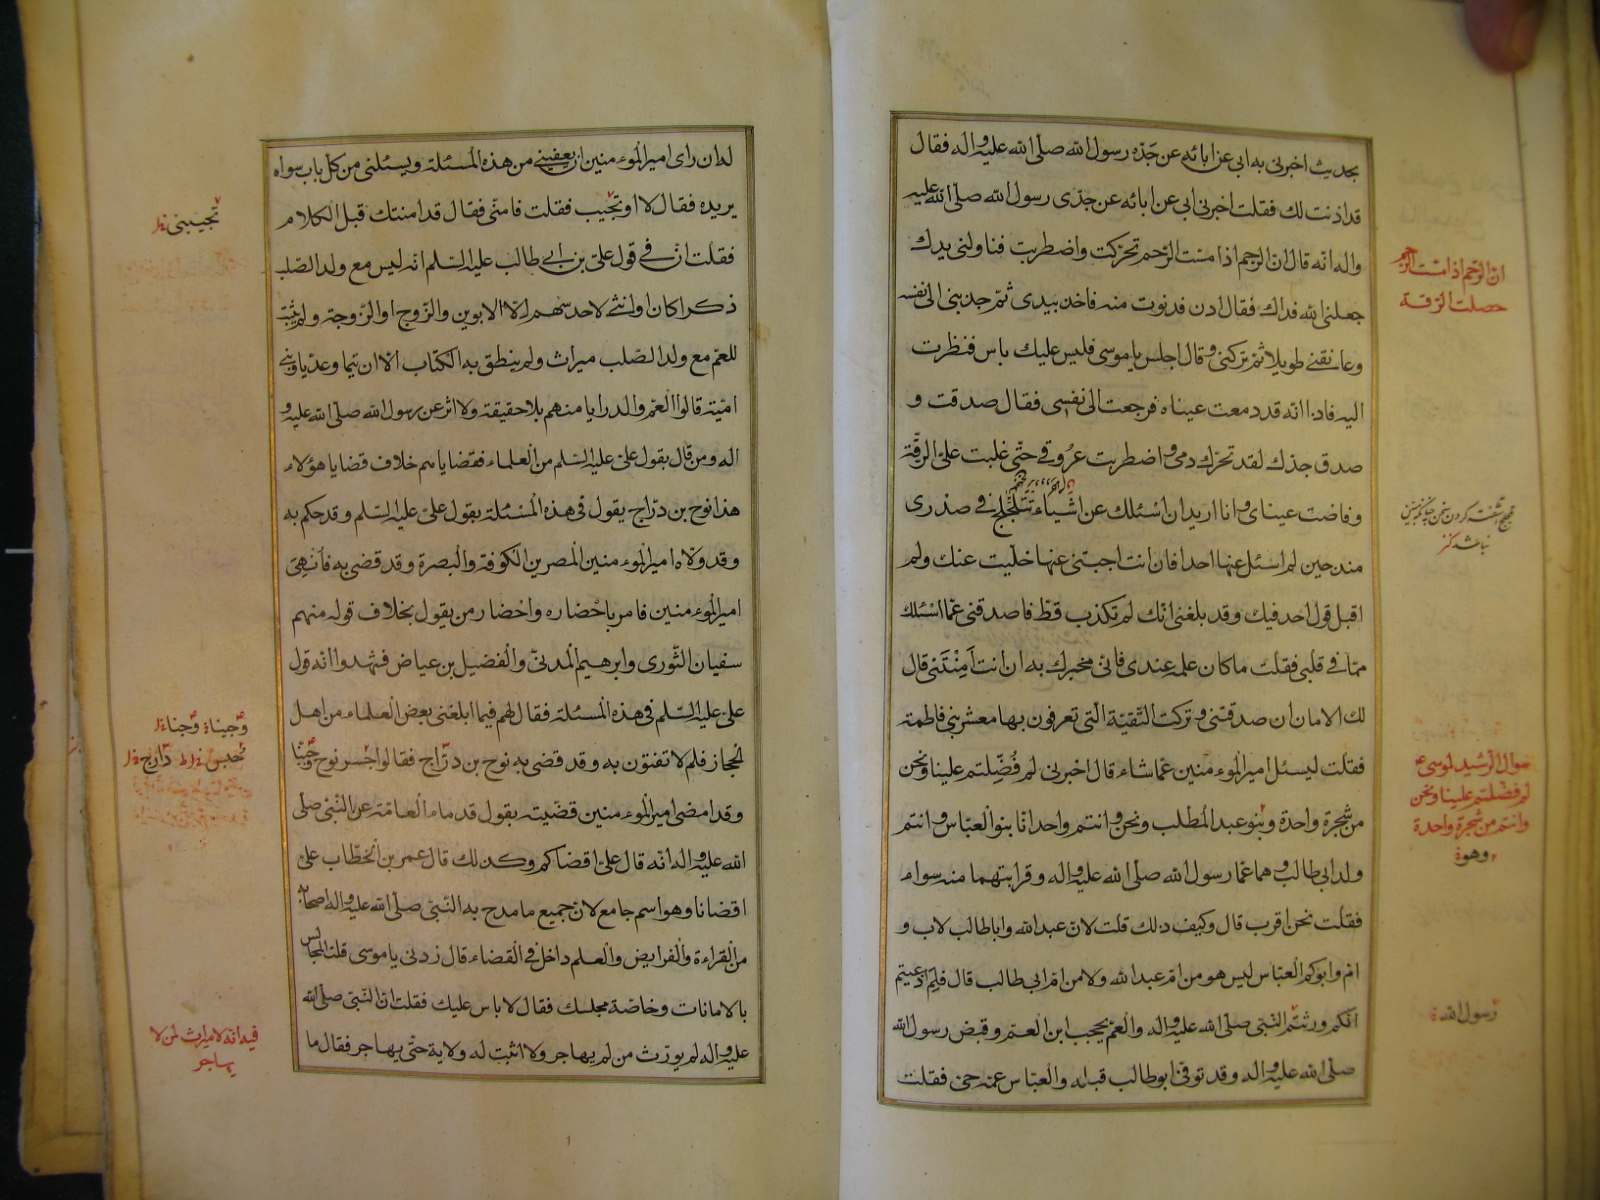 بحديث اخبرنى به ابى عن ابائه عن جدّه رسول الله صلّى الله عليه واله فقال
قد اذنت لك فقلت اخبرنى ابى عن ابائه عن جدّى رسول الله صلّى الله عليه
واله انّه قال انّ الرّحم اذا مسّت الرّحم تحرّكت واضطربت فناولنى يدك
جعلنى الله فداك فقال ادن فدنوت منه فاخذ بيدى ثمّ جذبنى الى نفسه
وعانقنى طويلا ثمّ تركنى وقال اجلس يا موسى فليس عليك باس فنظرت
اليه فاذا انّه قد دمعت عيناه فرجعت الى نفسى فقال صدقت و
صدق جدّك لقد تحرّك دمى واضطربت عروقى حتّى غلبت علىّ الرّقّة
وفاضت عيناى وانا اريد ان اسئلك عن اشياء تتلجلج فى صدرى
منذ حين لم اسئل عنها احدا فان انت اجبتنى عنها خلّيت عنك ولم
اقبل قول احد فيك وقد بلغنى انّك لم تكذب قطّ فاصدقنى عمّا اسئلك
ممّا فى قلبى فقلت ما كان علمه عندى فانّى مخبرك به ان انت اَمِنْتَنى قال
لك الامان ان صدقتنى وتركت التّقيّة الّتى تعرفون بها معشر بنى فاطمة
فقلت ليسئل اميرالموءمنين عمّا شاء قال اخبرنى لم فُضِّلتم علينا ونحن
من شجرة واحدة وبنو عبد المطلب ونحن وانتم واحد انّا بنو العبّاس وانتم
ولد ابى طالب وهما عمّا رسول الله صلّى الله عليه واله وقرابتهما منه سواء
فقلت نحن اقرب قال وكيف ذلك قلت لانّ عبد الله وابا طالب لاب و
امّ وابوكم العبّاس ليس هو من امّ عبد الله ولا من امّ ابى طالب قال فلِمَ ادّعيتم
انّكم ورثتم النّبى صلّى الله عليه واله والعمّ يحجب ابن العم وقبض رسول الله
صلّى الله عليه واله وقد توفّى ابو طالب قبله والعبّاس عمّه حىّ فقلت
انّ الرّحم اذا مسّت الرّحم
حصلت الرّقة
سوال الرّشيد لموسى ع
لم فضّلتم علينا ونحن
وانتم من شجرة واحدة
وهو
رسول الله
له ان راى اميرالموءمنين ان يعفينى من هذه المسئلة ويسئلنى من كلّ باب سواه
يريده فقال لا او تجيب فقلت فامنّى فقال قد امنتك قبل الكلام
فقلت انّ فى قول علىّ بن ابى طالب عليه السّلم انّه ليس مع ولد الصّلب
ذكرا كان او انثى لاحد سهم الّا الابوين والزّوج او الزّوجة ولم يثبت
للعمّ مع ولد الصّلب ميراث ولم ينطق به الكتاب الّا ان تيما وعديّا وبنى
اميّة قالوا العمّ والد رايا منهم بلا حقيقة ولا اثر عن رسول الله صلّى الله عليه و
اله ومن قال بقول علىّ عليه السّلم من العلماء فقضاياهم خلاف قضايا هؤلاء
هذا نوح بن درّاج يقول فى هذه المسئلة بقول علىّ عليه السّلم وقد حكم به
وقد ولّاه اميرالموءمنين المصرين الكوفة والبصرة وقد قضى به فانهى
اميرالموءمنين فامر باحضاره واحضار من يقول بخلاف قوله منهم
سفيان الثّورى وابرهيم المدنىّ والفضيل بن عياض فشهدوا انّه قول
علىّ عليه السّلم فى هذه المسئلة فقال لهم فيما ابلغنى بعض العلماء من اهل
الحجاز فلم لا تفتون به وقد قضى به نوح بن درّاج فقالوا جسر نوح وجبنّا
وقد امضى اميرالموءمنين قضيّته بقول قدماء العامّة عن النّبى صلّى
الله عليه واله انّه قال علىّ اقضاكم وكذلك قال عمر بن الخطّاب علىّ
اقضانا وهو اسم جامع لانّ جميع ما مدح به النّبى صلّى الله عليه واله اصحابه
من القراءة والفرايض والعلم داخل فى القضاء قال زدنى يا موسى قلت المجالس
بالامانات وخاصّة مجلسك فقال لا باس عليك فقلت انّ النّبى صلّى الله
عليه واله لم يورّث من لم يهاجر ولا اثبت له ولاية حتّى يهاجر فقال ما
تجيبنى
فيه انه لا ميراث لمن لا
يهاجر